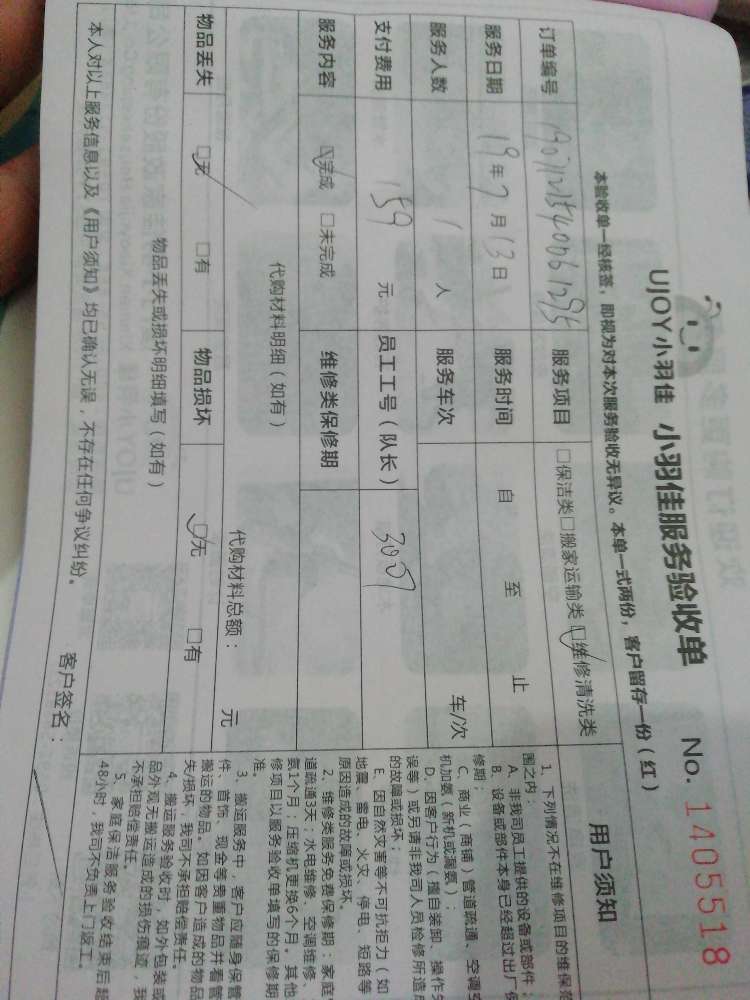 UJOY小羽佳 小羽佳服务验收单 No. 1405518
本验收单一经核签，即视为对本次服务验收无异议。本单一式两份，客户留存一份（红）
订单编号 服务项目 □保洁类□搬家运输类☑维修清洗类
服务日期 19年7月13日 服务时间 自 至 止
服务人数 1 人 服务车次 车/次
支付费用 159 元 员工工号（队长） 3057
服务内容 ☑完成 □未完成 维修类保修期
代购材料明细（如有） 代购材料总额： 元
物品丢失 ☑无 □有 物品损坏 ☑无 □有
物品丢失或损坏明细填写（如有）
本人对以上服务信息以及《用户须知》均已确认无误，不存在任何争议纠纷。
客户签名：
用户须知
1、下列情况不在维修项目的维保
围之内：
A、非我司员工提供的设备或部件；
B、设备或部件本身已经超过出厂保
修期；
C、商业（商铺）管道疏通、空调
机加氨（新机或漏氨）；
D、因客户行为（擅自装卸、操作失
误等）或另请非我司人员检修所造成
的故障或损坏；
E、因自然灾害等不可抗拒力（如
地震、雷电、火灾、停电、短路等
原因造成的故障或损坏。
2、维修类服务免费保修期：家庭
道疏通3天；水电维修、空调维修、
氨1个月；压缩机更换6个月。其他
修项目以服务验收单填写的保修期
准。
3、搬运服务中，客户应随身保管
件、首饰、现金等贵重物品并看管
搬运的物品。如因客户造成的物品
失/损坏，我司不承担赔偿责任。
4、搬运服务验收时，如外包装或
品外观无搬运造成的损伤痕迹，我
不承担赔偿责任。
5、家庭保洁服务验收结束后超
48小时，我司不负责上门返工。